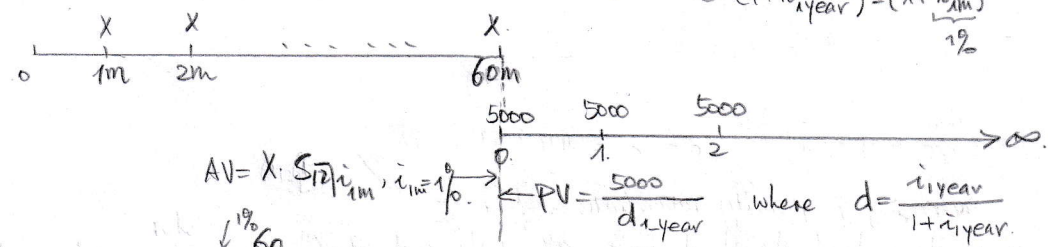 (1+i1year)=(1+i1m)
1%
X X . . . . . . X.
0 1m 2m 60m
5000 5000 5000
0. 1. 2 ∞.
AV= X. S12|i1m, i1m=1%. PV= 5000/d1-year where d= i1year/1+i1year.
1%
60